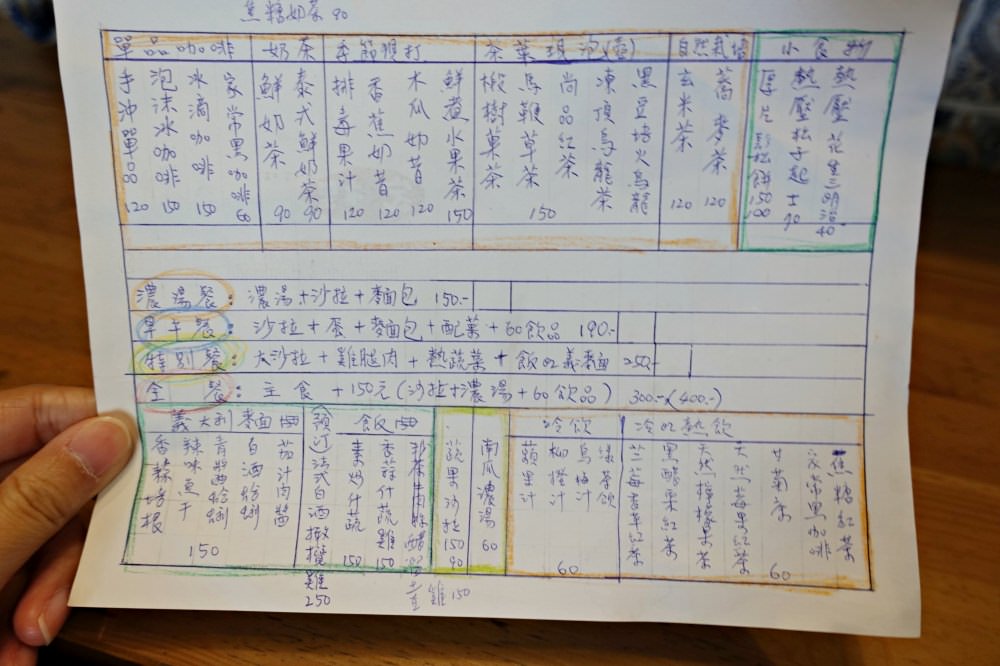 焦糖奶茶 90
單品咖啡
手沖單品 120
泡沫冰咖啡 150
冰滴咖啡 150
家常黑咖啡 60
奶茶
鮮奶茶 90
泰式鮮奶茶 90
季節現打
排毒果汁 120
香蕉奶昔 120
木瓜奶昔 120
鮮煮水果茶 150
茶葉現泡(壺)
馬鞭草茶
尚品紅茶
凍頂烏龍茶
黑豆培火烏龍
150
自然栽培
玄米茶 120
蕎麥茶 120
小食
厚片鬆餅 150 100
熱壓松子起士 90
熱壓花生三明治 40
濃湯餐: 濃湯+沙拉+麵包 150.-
早午餐: 沙拉+蛋+麵包+配菜+60飲品 190.-
特別餐: 大沙拉+雞腿肉+熱蔬菜+飯or義麵 250.-
全餐: 主食+150元(沙拉+濃湯+60飲品) 300.-(400.-)
義大利麵 150
香辣培根
辣味魚干
青醬蛤蜊
白酒蛤蜊
茄汁肉醬
150
預訂法式白酒橄欖雞 250
飯 150
素炒什蔬 150
香蒜什蔬雞 150
雞 150
蔬果沙拉 150 90
南瓜濃湯 60
冷飲
蘋果汁
柳橙汁
烏梅汁
綠茶飲
60
冷or熱飲
黑醋栗紅茶
天然檸檬果茶
天然莓果紅茶
甘菊茶
家常黑咖啡
焦糖紅茶
60